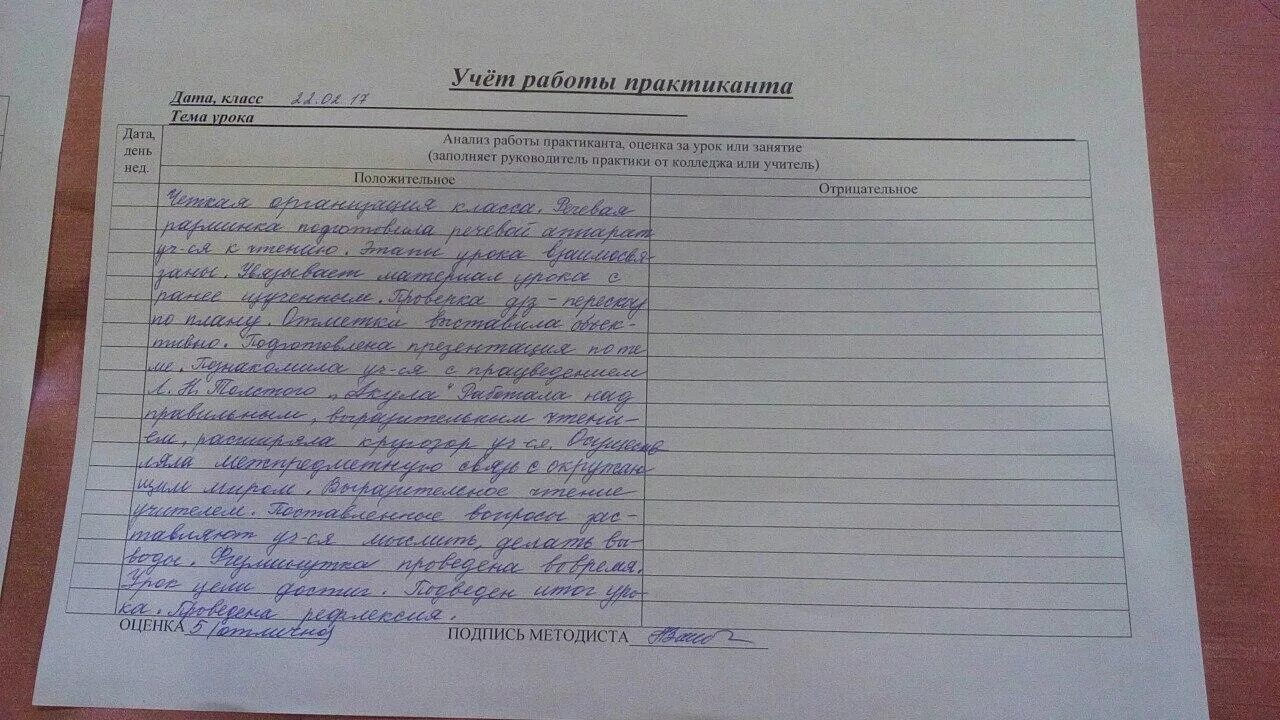 Учёт работы практиканта
Дата, класс 22.02 17
Тема урока
Дата, день нед.
Анализ работы практиканта, оценка за урок или занятие
(заполняет руководитель практики от колледжа или учитель)
Положительное
Отрицательное
Четкая организация класса. Речевая
разминка подготовила речевой аппарат
уч-ся к чтению. Этапы урока взаимосвя-
заны. Увязывает материал урока с
ранее изученным. Проверка д/з - пересказ
по плану. Отметки выставила объек-
тивно. Подготовлена презентация по те
ме. Познакомила уч-ся с произведением
Л. Н. Толстого „Акула" Работала над
правильным, выразительным чтени-
ем, расширяла кругозор уч-ся. Осуществ
ляла межпредметную связь с окружаю
щим миром. Выразительное чтение
учителем. Поставленные вопросы зас-
тавляют уч-ся мыслить, делать вы-
воды. Физминутка проведена вовремя.
Урок цели достиг. Подведен итог уро-
ка. Проведена рефлексия.
ОЦЕНКА 5 (отлично) ПОДПИСЬ МЕТОДИСТА